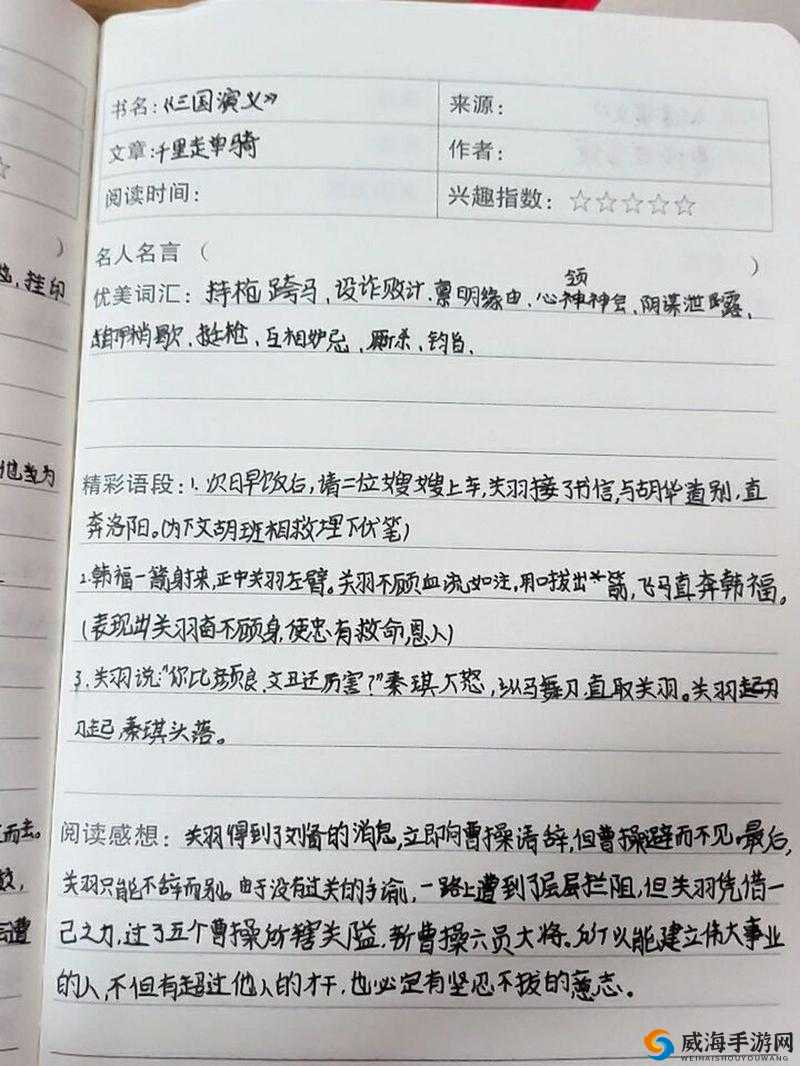 书名：《三国演义》
来源：
文章：千里走单骑
作者：
阅读时间：
兴趣指数：☆☆☆☆☆
名人名言（ ）
优美词汇：持枪跨马、设诈败计、禀明缘由、心领神会、阴谋泄露、
稍歇、挺枪、互相妒忌、厮杀、钧旨、
精彩语段：1. 次日早饭后，请二位嫂嫂上车，关羽接了书信，与胡华道别，直
奔洛阳。（为下文胡班相救埋下伏笔）
2. 韩福一箭射来，正中关羽左臂。关羽不顾血流如注，用口拔出箭，飞马直奔韩福。
（表现出关羽奋不顾身，使忠有救命恩人）
3. 关羽说："你比颜良、文丑还厉害？"秦琪大怒，纵马舞刀，直取关羽。关羽起刀
刀起，秦琪头落。
阅读感想：关羽得到了刘备的消息，立即向曹操请辞，但曹操避而不见。最后，
关羽只能不辞而别。由于没有过关的手谕，一路上遭到了层层拦阻，但关羽凭借一
己之力，过了五个曹操所辖关隘，斩曹操六员大将。所以能建立伟大事业
的人，不但有超过他人的才干，也必定有坚忍不拔的意志。
挂印
他当为
而去。
威海手游网
WEIHAISHOUYOUWANG